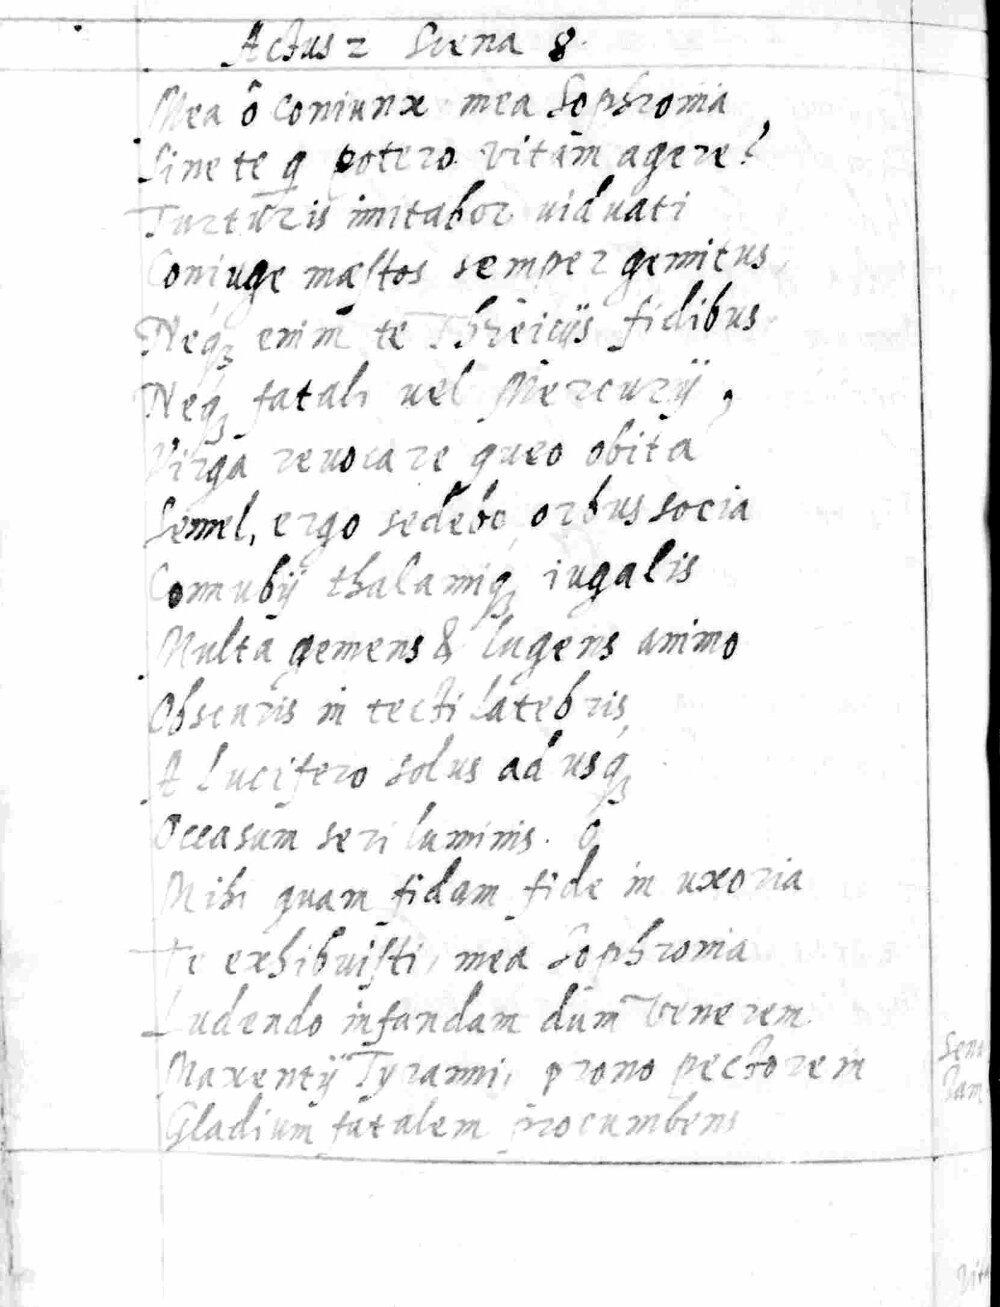 Actus 2 Scena 8.
Mea ô Coniunx mea Sophronia,
Sine te q̄ potero vitam agere?
Turturis imitabor viduati
Coniuge mæstos semper gemitus,
Neq₃ enim te Threicijs fidibus
Neq₃ fatali vel Mercurij,
Virgâ reuocare queo obitâ
Semel, ergo sedebo orbus socia
Connubij thalamiq₃ iugalis
Multa gemens & lugens animo
Obscuris in tecti latebris,
A Lucifero solus ad usq₃
Occasum seri luminis. O
Mihi quam fidam fide in uxoria
Te exhibuisti, mea Sophronia
Ludendo infandam dum Venerem
Maxentij Tyranni, prono pectore in
Gladium fatalem procumbens